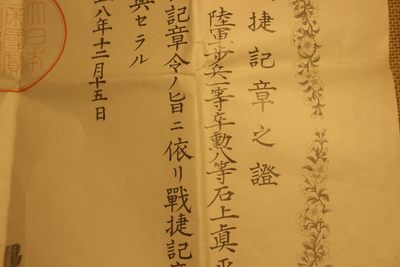 捷記章之證
陸軍歩兵一等卒勲八等石上眞
記章令ノ旨ニ依リ戰捷記章
與セラル
八年十二月十五日